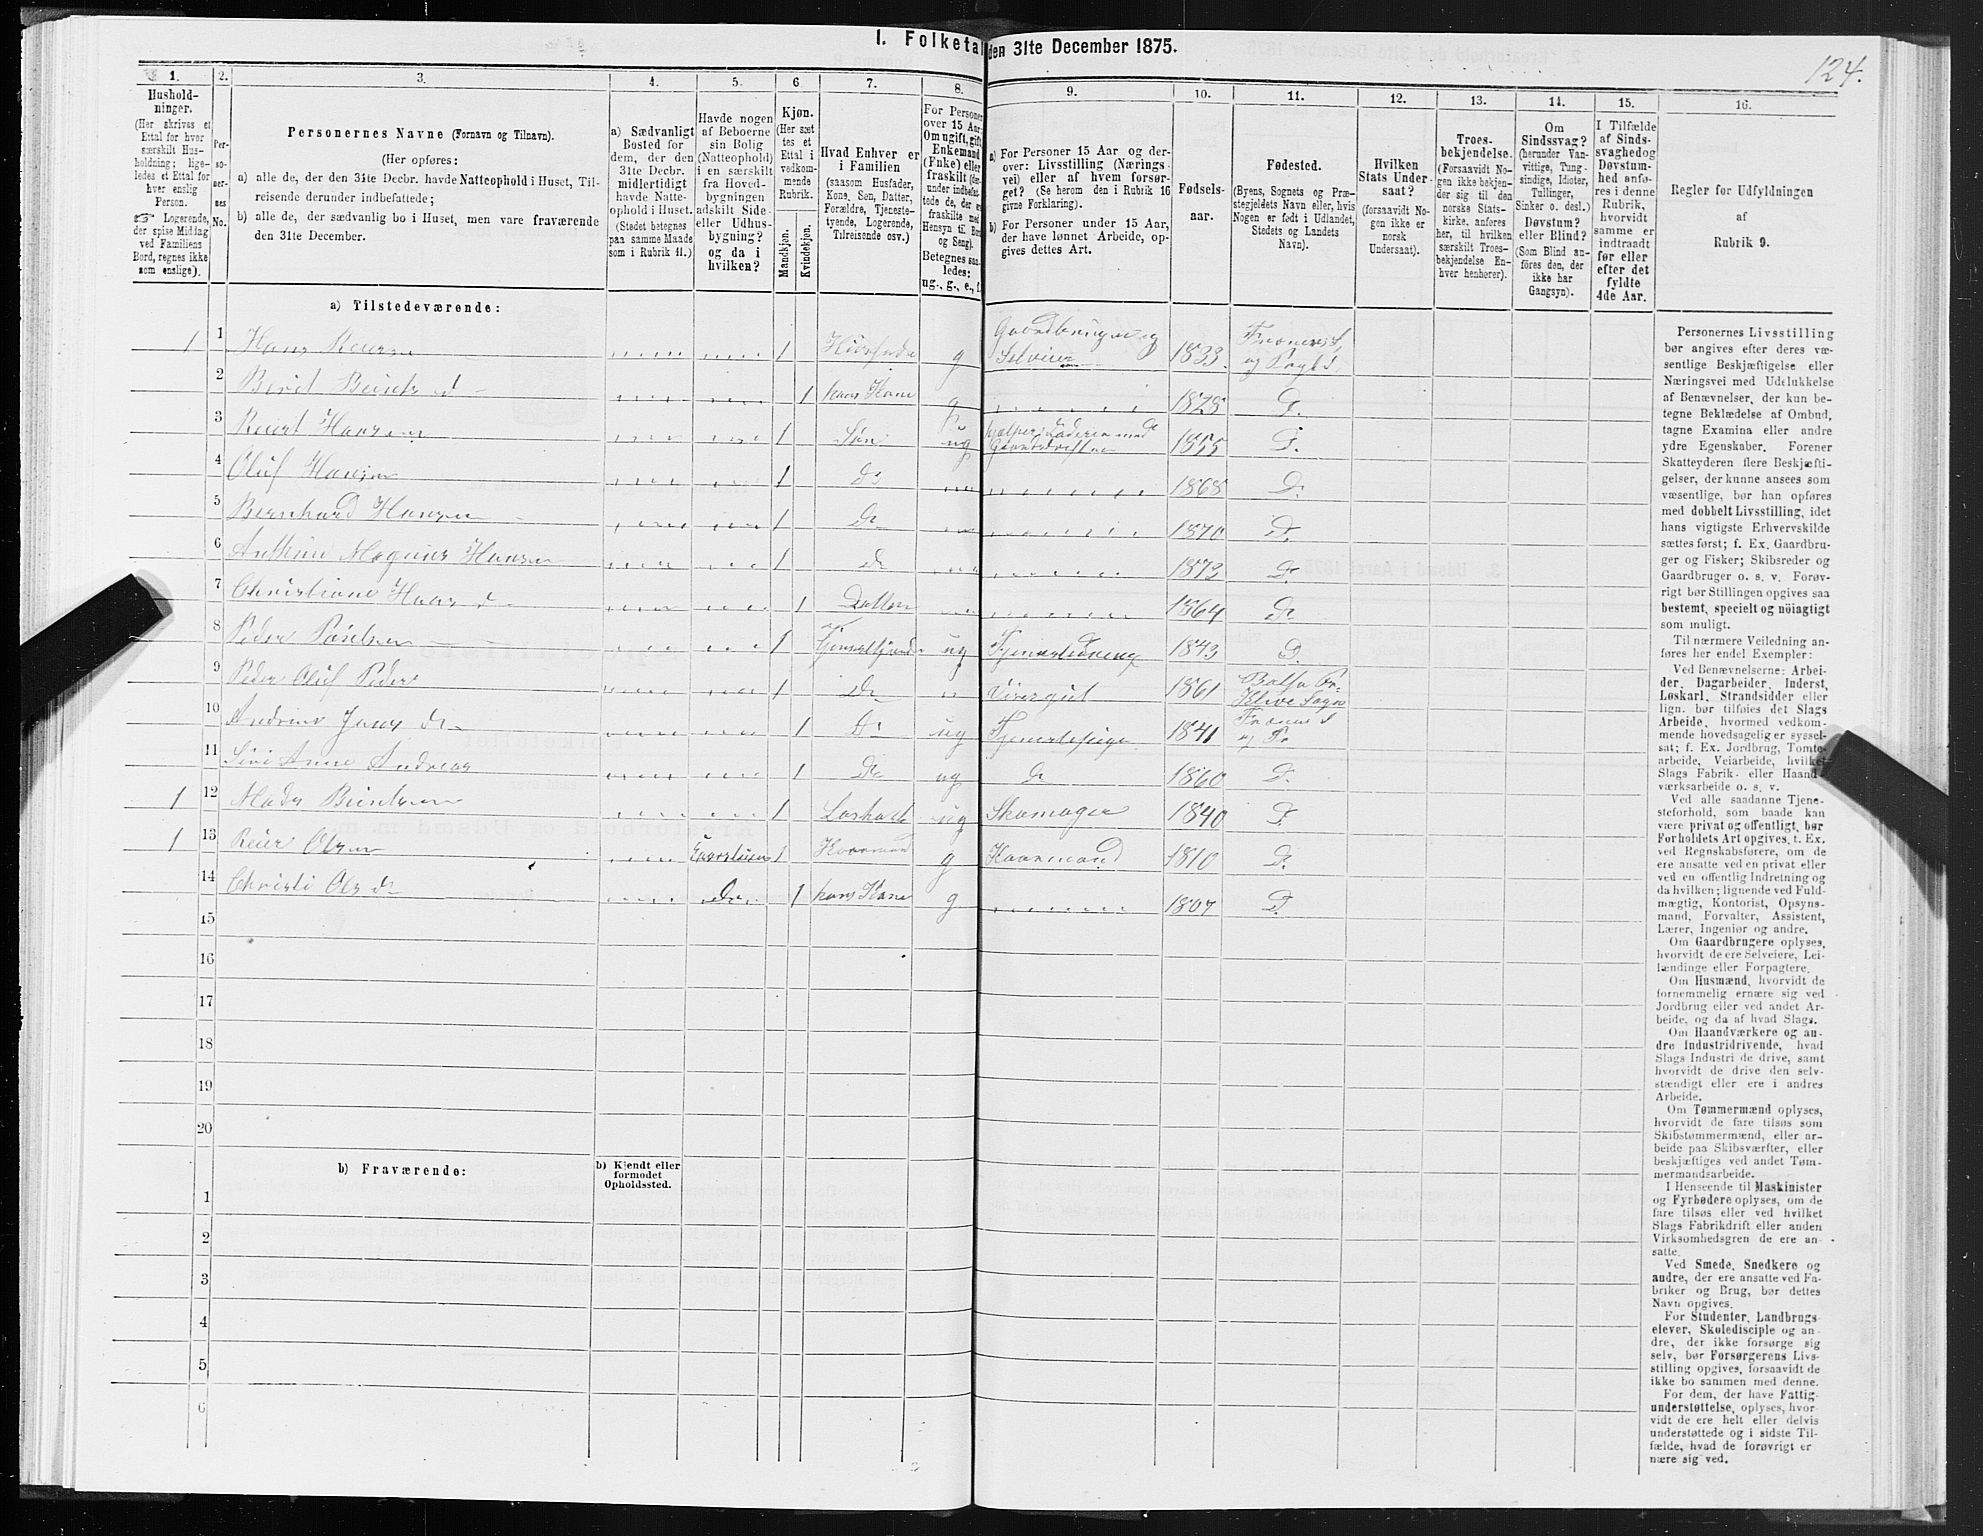 I. Folketal den 31te December 1875.
124.
1.
2.
3.
4.
5.
6
7.
8.
9.
10.
11.
12.
13.
14.
15.
16.
Hushold-
ninger.
(Her skrives et
Ettal for hver
særskilt Hus-
holdning; lige-
ledes et Ettal for
hver enslig
Person.
☞ Logerende,
der spise Middag
ved Familiens
Bord, regnes ikke
som enslige).
Per-
so-
ner-
nes
No.
Personernes Navne (Fornavn og Tilnavn).
(Her opføres:
a) alle de, der den 31te Decbr. havde Natteophold i Huset, Til-
reisende derunder indbefattede;
b) alle de, der sædvanlig bo i Huset, men vare fraværende
den 31te December.
a) Sædvanligt
Bosted for
dem, der den
31te Decbr.
midlertidigt
havde Natte-
ophold i Huset.
(Stedet betegnes
paa samme Maade
som i Rubrik 11.)
Havde nogen
af Beboerne
sin Bolig
(Natteophold)
i en særskilt
fra Hoved-
bygningen
adskilt Side-
eller Udhus-
bygning?
og da i
hvilken?
Kjøn.
(Her sæt
tes et
Ettal i
vedkom-
mende
Rubrik.
Mandkjøn.
Kvindekjøn.
Hvad Enhver er
i Familien
(saasom Husfader,
Kone, Søn, Datter,
Forældre, Tjeneste-
tyende, Logerende,
Tilreisende osv.)
For Personer
over 15 Aar:
Om ugift, gift,
Enkemand
(Enke) eller
fraskilt (der-
under indbefat-
tede de, der er
fraskilte med
Hensyn til Bord
og Seng).
Betegnes saa-
ledes:
ug., g., e., f.
a) For Personer 15 Aar og der-
over: Livsstilling (Nærings-
vei) eller af hvem forsør-
get? (Se herom den i Rubrik 16
givne Forklaring).
b) For Personer under 15 Aar,
der have lønnet Arbeide, op-
gives dettes Art.
Fødsels-
aar.
Fødested.
(Byens, Sognets og Præ-
stegjeldets Navn eller, hvis
Nogen er født i Udlandet,
Stedets og Landets
Navn).
Hvilken
Stats Under-
saat?
(forsaavidt No-
gen ikke er
norsk
Undersaat).
Troes-
bekjendelse.
(Forsaavidt No-
gen ikke bekjen-
der sig til den
norske Stats-
kirke, anføres
her, til hvilken
særskilt Troes-
bekjendelse En-
hver henhører).
Om
Sindssvag?
(herunder Van-
vittige, Tung-
sindige, Idioter,
Tullinger,
Sinker o. desl.)
Døvstum?
eller Blind?
(Som Blind an-
føres den, der
ikke har
Gangsyn).
I Tilfælde
af Sinds-
svaghed og
Døvstum-
hed anfø-
res i denne
Rubrik,
hvorvidt
samme er
indtraadt
før eller
efter det
fyldte
4de Aar.
Regler for Udfyldningen
af
Rubrik 9.
a) Tilstedeværende:
1 1 Hans Reiersen 1 Huusfader g Gaardbruger og Selveier 1833. Frænens S. og Prgld
2 Berit Berits d 1 hans Kone g 1828 D.
3 Reiert Hansen 1 Søn ug hjælper Faderen med Gaardsdriften 1855 D.
4 Oluf Hansen 1 do 1868 D.
5 Bernhard Hansen 1 do 1870 D.
6 Anthon Magnus Hansen 1 do 1873 D
7 Christiane Hans d 1 Datter 1864 D
8 Peder Poulsen 1 ug Tjenestedreng 1843 D.
9 Peder Oluf Peders 1 do Sogn 1861
10 Andrine Jans d 1 do ug Tjenestepige 1841 Frænens S og Pr
11 Siri Anne Andreas 1 do ug do 1860 D.
1 12 Mads Bentsen 1 Loskarl ug Skomager 1840 D.
1 13 Reier Olsen 1 Kaarmand g Kaarmand 1810 D.
14 Christi Ols d Do. 1 hans Kone g 1807 D.
15
16
17
18
19
20
b) Fraværende:
b) Kjendt eller
formodet
Opholdssted.
1
2
3
4
5
6
Personernes Livsstilling
bør angives efter deres væ-
sentlige Beskjæftigelse eller
Næringsvei med Udelukkelse
af Benævnelser, der kun be-
tegne Beklædelse af Ombud,
tagne Examina eller andre
ydre Egenskaber. Forener
Skatteyderen flere Beskjæfti-
gelser, der kunne ansees som
væsentlige, bør han opføres
med dobbelt Livsstilling, idet
hans vigtigste Erhvervskilde
sættes først; f. Ex. Gaardbru-
ger og Fisker; Skibsreder og
Gaardbruger o. s. v. Forøv-
rigt bør Stillingen opgives saa
bestemt, specielt og nöiagtigt
som muligt.
Til nærmere Veiledning an-
føres her endel Exempler:
Ved Benævnelserne: Arbei-
der, Dagarbeider, Inderst,
Løskarl, Strandsidder eller
lign. bør tilføies det Slags
Arbeide, hvormed vedkom-
mende hovedsagelig er syssel-
sat; f. Ex. Jordbrug, Tomte-
arbeide, Veiarbeide, hvilket
Slags Fabrik- eller Haand-
værksarbeide o. s. v.
Ved alle saadanne Tjene-
steforhold, som baade kan
være privat og offentligt, bør
Forholdets Art opgives, t. Ex.
ved Regnskabsførere, om de
ere ansatte ved en privat eller
ved en offentlig Indretning og
da hvilken; lignende ved Fuld-
mægtig, Kontorist, Opsyns-
mand, Forvalter, Assistent,
Lærer, Ingeniør og andre.
Om Gaardbrugere oplyses,
hvorvidt de ere Selveiere, Lei-
lændinge eller Forpagtere.
Om Husmænd, hvorvidt de
fornemmelig ernære sig ved
Jordbrug eller ved andet Ar-
beide, og da af hvad Slags.
Om Haandværkere og an-
dre Industridrivende, hvad
Slags Industri de drive, samt
hvorvidt de drive den selv-
stændigt eller ere i andres
Arbeide.
Om Tømmermænd oplyses,
hvorvidt de fare tilsøs som
Skibstømmermænd, eller ar-
beide paa Skibsværfter, eller
beskjæftiges ved andet Tøm-
mermandsarbeide.
I Henseende til Maskinister
og Fyrbødere oplyses, om de
fare tilsøs eller ved hvilket
Slags Fabrikdrift eller anden
Virksomhedsgren de ere an-
satte.
Ved Smede, Snedkere og
andre, der ere ansatte ved Fa-
briker og Brug, bør dettes
Navn opgives.
For Studenter, Landbrugs-
elever, Skoledisciple og an-
dre, der ikke forsørge sig
selv, bør Forsørgerens Livs-
stilling opgives, forsaavidt de
ikke bo sammen med denne.
For dem, der have Fattig-
understøttelse, oplyses, hvor-
vidt de ere helt eller delvis
understøttede og i sidste Til-
fælde, hvad de forøvrigt er
nære sig ved.